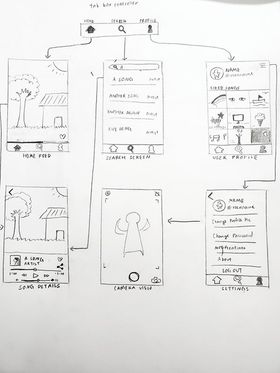 tab bar controller
HOME SEARCH PROFILE
HOME FEED
A SONG
ANOTHER SONG
SEARCH SCREEN
NAME
@username
LIKED SONGS
USER PROFILE
A SONG
ARTIST
SONG DETAILS
CAMERA VIEW
NAME
@username
Change Profile Pic
Change Password
Notifications
About
LOG OUT
SETTINGS